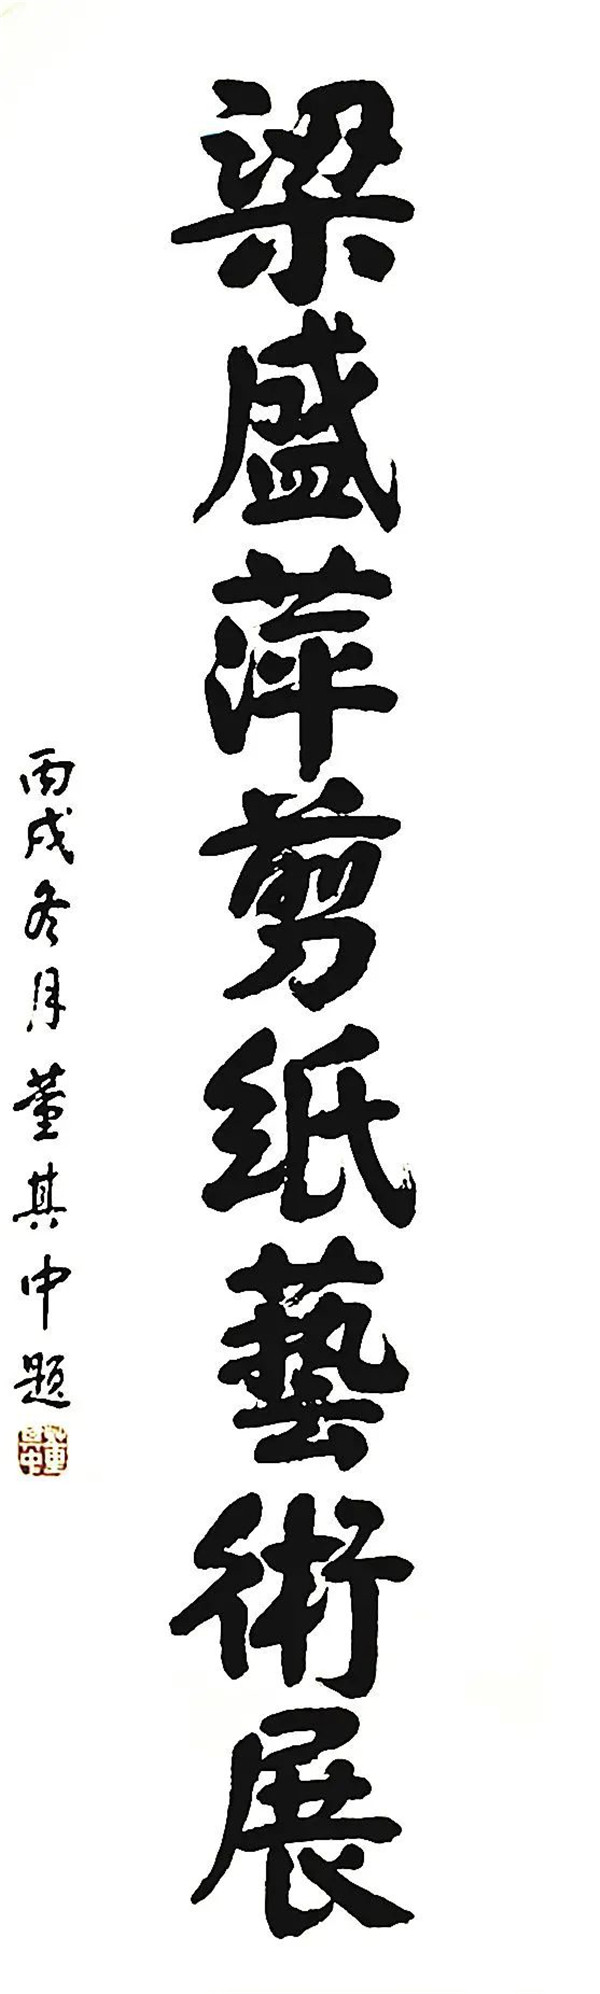 梁盛萍剪纸藝術展
丙戌冬月董其中題
董其中